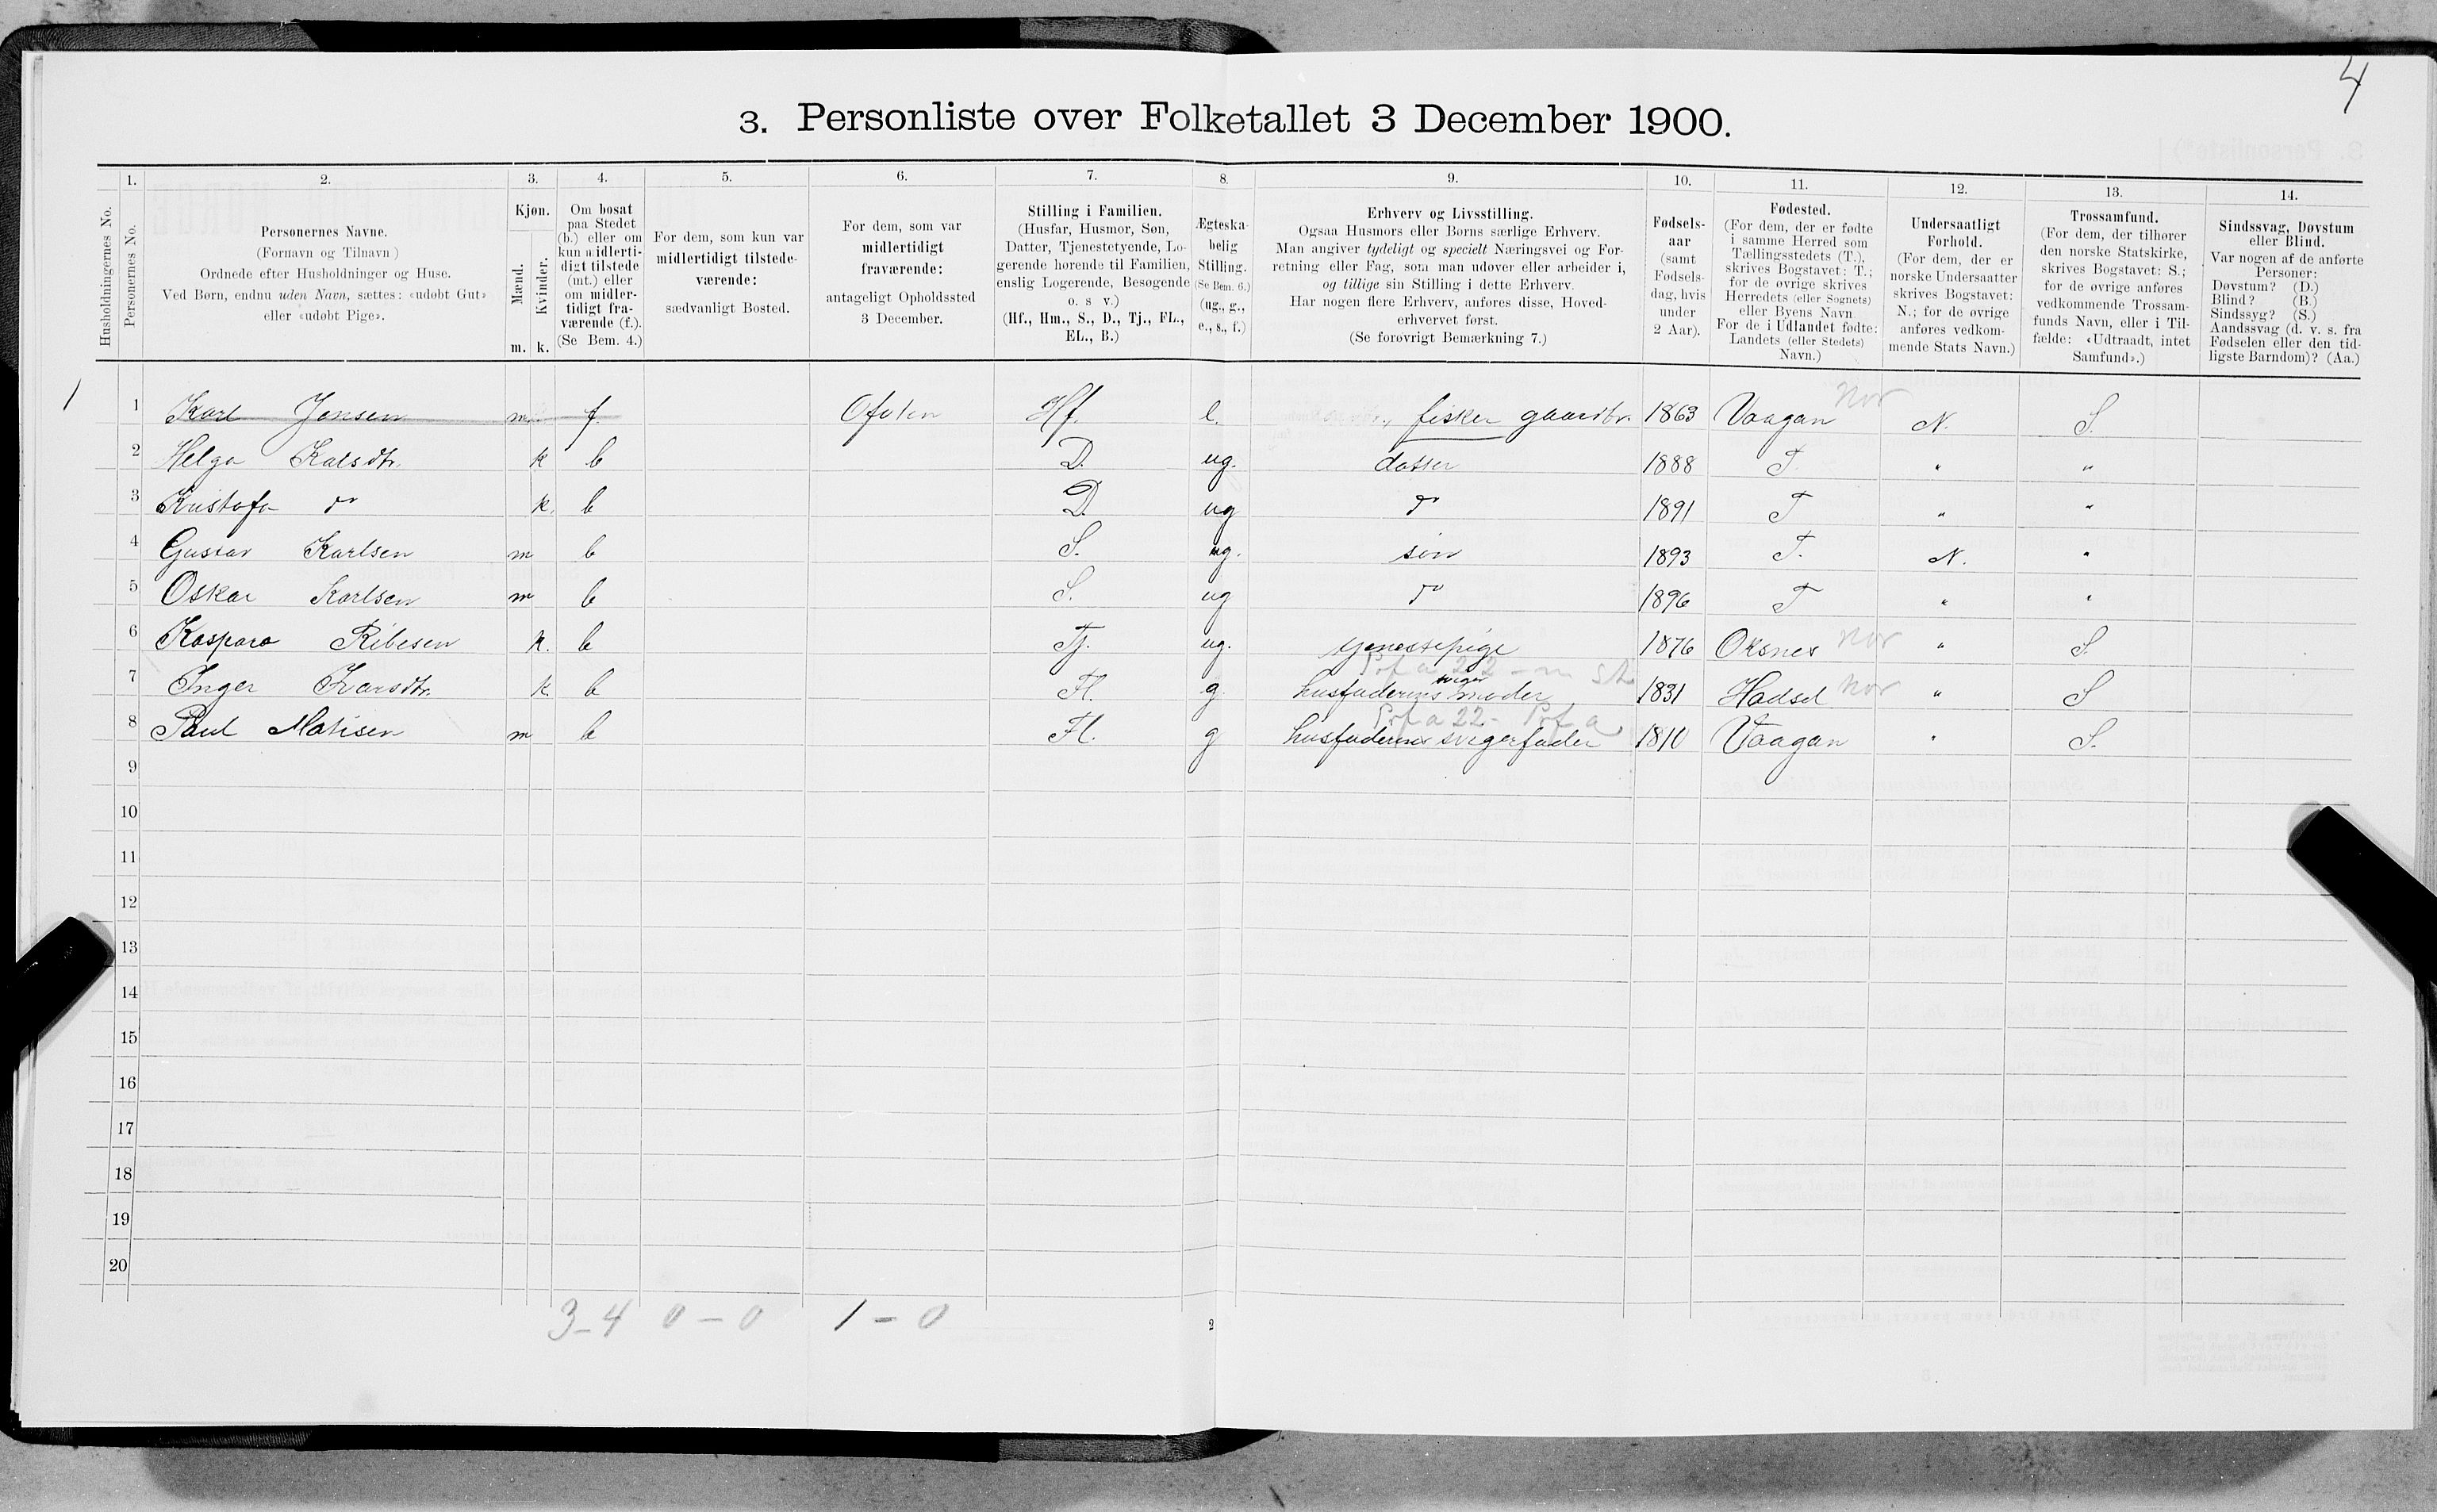 4
3. Personliste over Folketallet 3 December 1900.
Husholdningernes No.
1.
Personernes No.
2.
Personernes Navne.
(Fornavn og Tilnavn)
Ordnede efter Husholdninger og Huse.
Ved Børn, endnu uden Navn, sættes: «udøbt Gut»
eller «udøbt Pige».
3.
Kjøn.
Mænd.
Kvinder.
m. k.
4.
Om bosat
paa Stedet
(b.) eller om
kun midlerti-
digt tilstede
(mt.) eller
om midler-
tidigt fra-
værende (f.).
(Se Bem. 4.)
5.
For dem, som kun var
midlertidigt tilstede-
værende:
sædvanligt Bosted.
6.
For dem, som var
midlertidigt
fraværende:
antageligt Opholdssted
3 December.
7.
Stilling i Familien.
(Husfar, Husmor, Søn,
Datter, Tjenestetyende, Lo-
gerende hørende til Familien,
enslig Logerende, Besøgende
o. s v.)
(Hf., Hm., S., D., Tj., FL.,
EL., B.)
8.
Ægteska-
belig
Stilling.
(Se Bem. 6.)
(ug., g.,
e., s., f.)
9.
Erhverv og Livsstilling.
Ogsaa Husmors eller Børns særlige Erhverv.
Man angiver tydeligt og specielt Næringsvei og For-
retning eller Fag, som man udøver eller arbeider i,
og tillige sin Stilling i dette Erhverv.
Har nogen flere Erhverv, anføres disse, Hoved-
erhvervet først.
(Se forøvrigt Bemærkning 7.)
10.
Fødsels-
aar
(samt
Fødsels-
dag, hvis
under
2 Aar).
11.
Fødested.
(For dem, der er fødte
i samme Herred som
Tællingsstedets (T.),
skrives Bogstavet: T.;
for de øvrige skrives
Herredets (eller Sognets)
eller Byens Navn
For de i Udlandet fødte:
Landets (eller Stedets)
Navn.)
12.
Undersaatligt
Forhold.
(For dem, der er
norske Undersaatter
skrives Bogstavet:
N.; for de øvrige
anføres vedkom-
mende Stats Navn.)
13.
Trossamfund.
(For dem, der tilhører
den norske Statskirke,
skrives Bogstavet: S.;
for de øvrige anføres
vedkommende Trossam-
funds Navn, eller i Til-
fælde: «Udtraadt, intet
Samfund».)
14.
Sindssvag, Døvstum
eller Blind.
Var nogen af de anførte
Personer:
Døvstum? (D.)
Blind? (B.)
Sindssyg? (S.)
Aandssvag (d. v. s. fra
Fødselen eller den tid-
ligste Barndom)? (Aa.)
1 1 Karl Jensen m. f. Ofoten Hf. e. fisker gaardbr. 1863 Vaagan Nor N. S.
2 Helga Karlsdtr. k b D. ug. datter 1888 T. " "
3 Kristofa do k. b D. ug do 1891 T " "
4 Gustav Karlsen m b S. ug. søn 1893 T. N. "
5 Oskar Karlsen m b S. ug do 1896 T " "
6 Kaspara Ribesen k. b Tj. ug. tjenestepige 1876 Oksnes Nor " S.
7 Inger Ivarsdtr. k b Fl. g. husfaderens sviger moder 1831 Hadsel Nor " S
8 Paul Matisen m b Fl. g husfaderens svigerfader 1810 Vaagan " S.
9
10
11
12
13
14
15
16
17
18
19
20
3-4 0-0 1-0
2